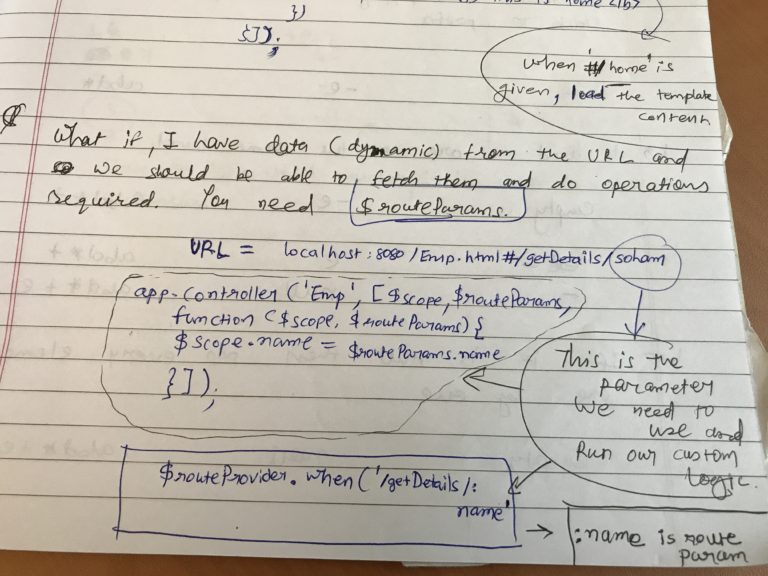 })
{]).
;
when '#/home' is
given, load the template
content
What if, I have data (dynamic) from the URL and
we should be able to fetch them and do operations
required. You need $routeParams.
URL = localhost:8080/Emp.html#/getDetails/soham
app.controller('Emp', [$scope, $routeParams,
function ($scope, $routeParams) {
$scope.name = $routeParams.name
}]);
This is the
parameter
We need to
use and
Run our custom
logic.
$routeProvider.when('/getDetails/:
name'
:name is route
param